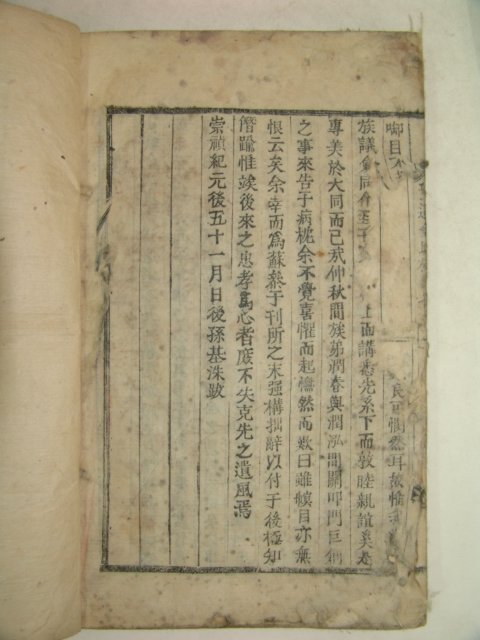 啣目
民可慨然耳故惟
族議亝同
上而講悉先系下而敦睦親誼矣
專美於大同而已哉仲秋間族弟潤春與潤泓間關叩門巨細
之事來告于病枕余不覺喜懼而起憮然而歎曰雖瞑目亦無
恨云矣余幸而爲蘇叅于刊所之末强構拙辭以付于後極知
僭踰惟竢後來之忠孝爲心者庶不失克先之遺風焉
崇禎紀元後五十一月日後孫基洙跋